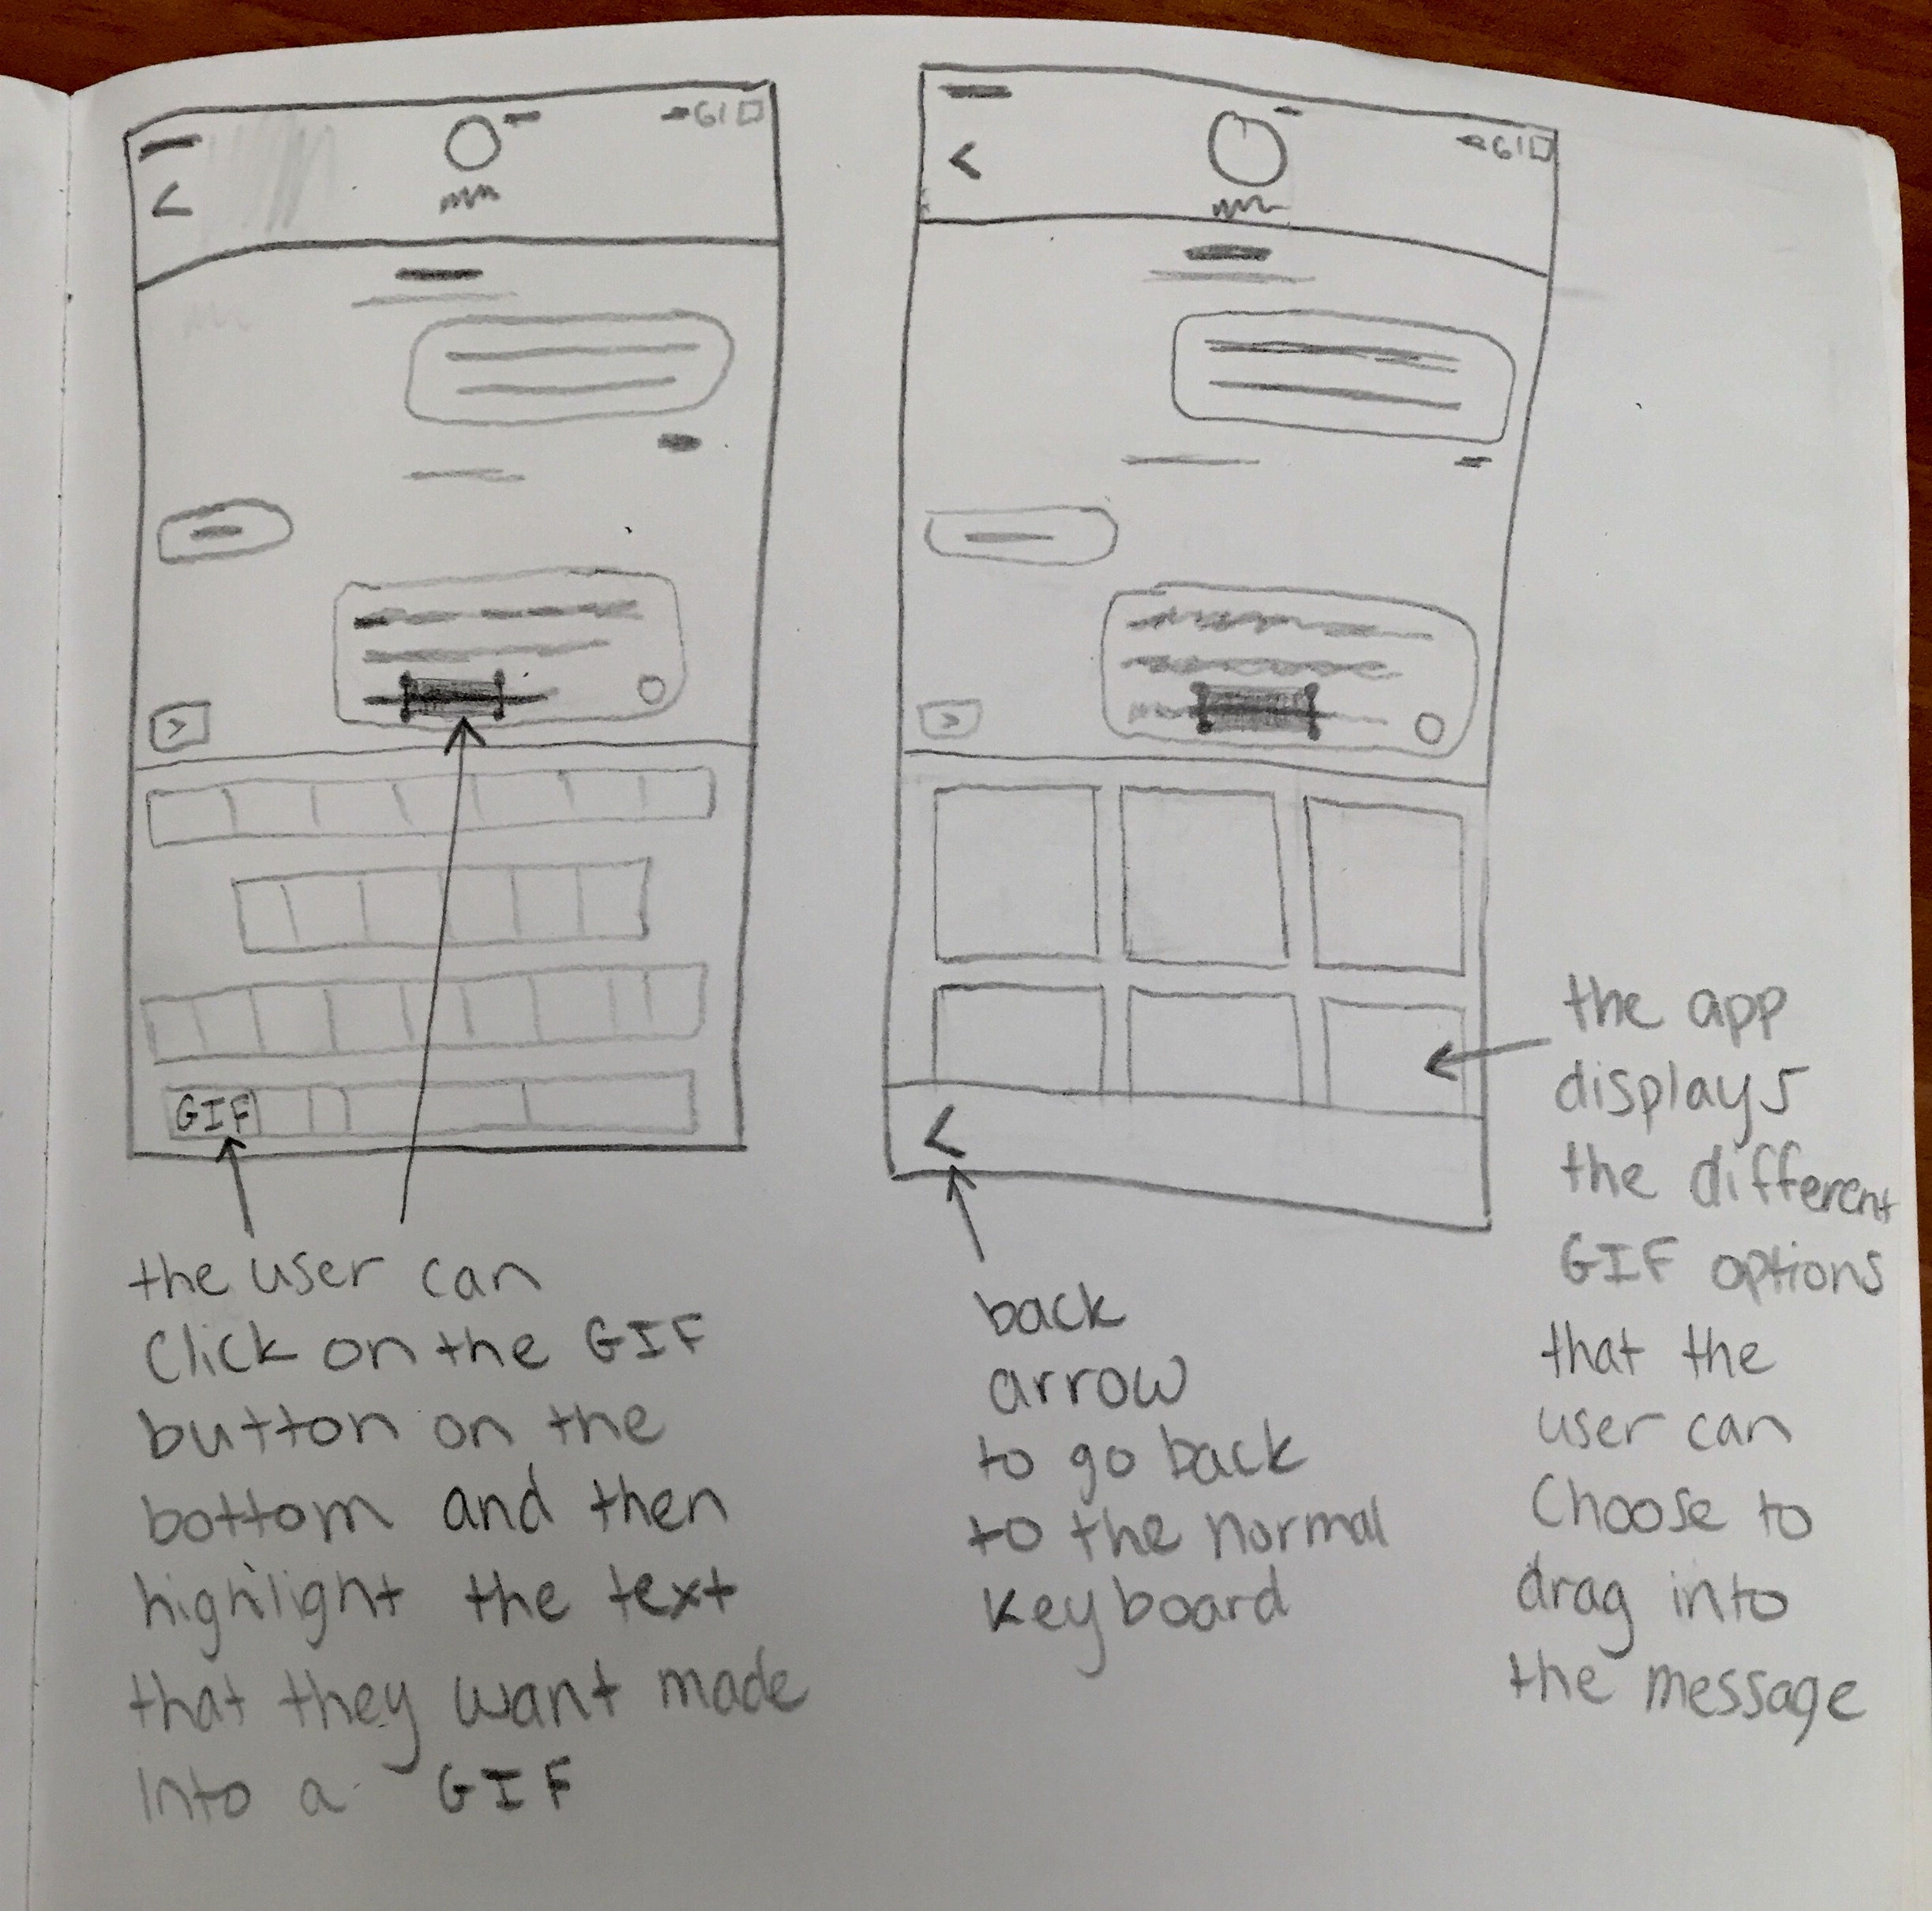 61
61
GIF
the user can
Click on the GIF
button on the
bottom and then
highlight the text
that they want made
into a GIF
back
arrow
to go back
to the normal
keyboard
the app
displays
the different
GIF options
that the
user can
Choose to
drag into
the message